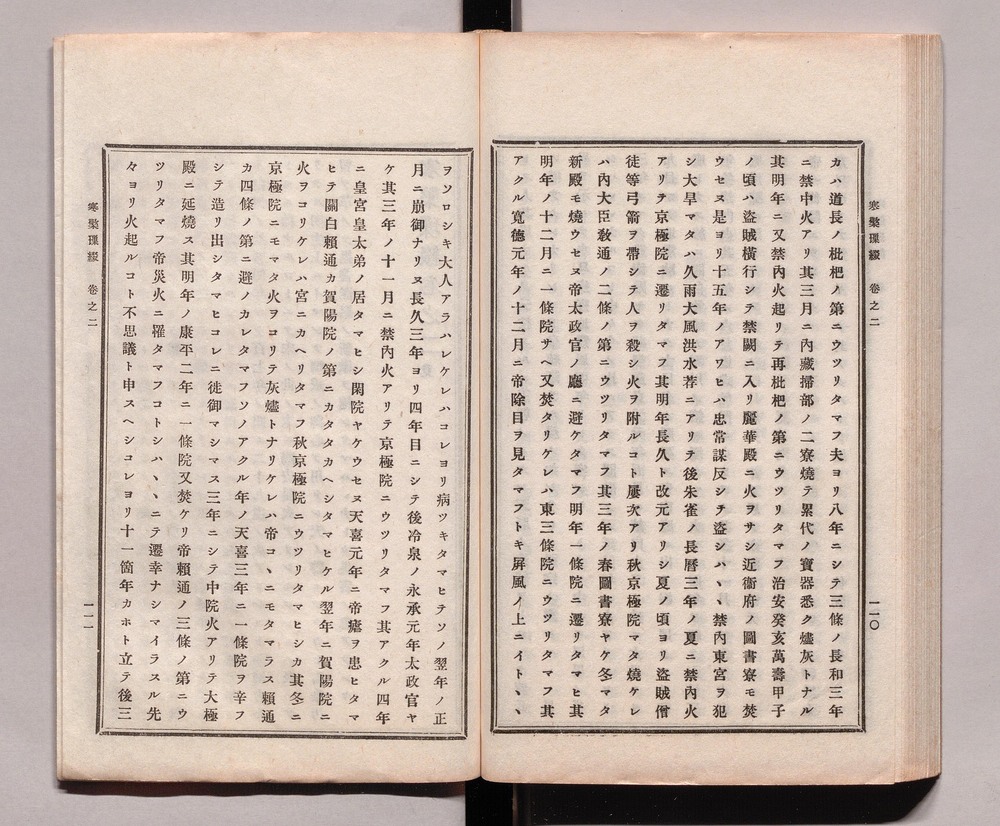 寒檠璅綴　卷之二
一一〇
カハ道長ノ枇杷ノ第ニウツリタマフ夫ヨリ八年ニシテ三條ノ長和三年
ニ禁中火アリ其三月ニ內藏掃部ノ二寮燒テ累代ノ寶器悉ク燼灰トナル
其明年ニ又禁內火起リテ再枇杷ノ第ニウツリタマフ治安癸亥萬壽甲子
ノ頃ハ盜賊橫行シテ禁闕ニ入リ麗華殿ニ火ヲサシ近衞府ノ圖書寮モ焚
ウセヌ是ヨリ十五年ノアワヒハ忠常謀反シテ盜シハヽ、禁內東宮ヲ犯
シ大旱マタハ久雨大風洪水荐ニアリテ後朱雀ノ長曆三年ノ夏ニ禁內火
アリテ京極院ニ遷リタマフ其明年長久ト改元アリシ夏ノ頃ヨリ盜賊僧
徒等弓箭ヲ帶シテ人ヲ殺シ火ヲ附ルコト屢次アリ秋京極院マタ燒ケレ
ハ內大臣敎通ノ二條ノ第ニウツリタマフ其三年ノ春圖書寮ヤケ冬マタ
新殿モ燒ウセヌ帝太政官ノ廳ニ避ケタマフ明年一條院ニ遷リタマヒ其
明年ノ十二月ニ一條院サヘ又焚タリケレハ東三條院ニウツリタマフ其
アクル寬德元年ノ十二月ニ帝除目ヲ見タマフトキ屛風ノ上ニイトヽ、
ヲソロシキ大人アラハレケレハコレヨリ病ツキタマヒテソノ翌年ノ正
月ニ崩御ナリヌ長久三年ヨリ四年目ニシテ後冷泉ノ永承元年太政官ヤ
ケ其三年ノ十一月ニ禁內火アリテ京極院ニウツリタマフ其アクル四年
ニ皇宮皇太弟ノ居タマヒシ閑院ヤケウセヌ天喜元年ニ帝瘧ヲ患ヒタマ
ヒテ關白賴通カ賀陽院ノ第ニカタタカヘシタマヒケル翌年ニ賀陽院ニ
火ヲコリケレハ宮ニカヘリタマフ秋京極院ニウツリタマヒシカ其冬ニ
京極院ニモマタ火ヲコリテ灰燼トナリケレハ帝コヽニモタマラス賴通
カ四條ノ第ニ避ノカレタマフソノアクル年ノ天喜三年ニ一條院ヲ辛フ
シテ造リ出シタマヒコレニ徙御マシマス三年ニシテ中院火アリテ大極
殿ニ延燒ス其明年ノ康平二年ニ一條院又焚ケリ帝賴通ノ三條ノ第ニウ
ツリタマフ帝災火ニ罹タマフコトシハヽ、ニテ遷幸ナシマイラスル先
々ヨリ火起ルコト不思議ト申スヘシコレヨリ十一箇年カホト立テ後三
寒檠璅綴　卷之二
一一一